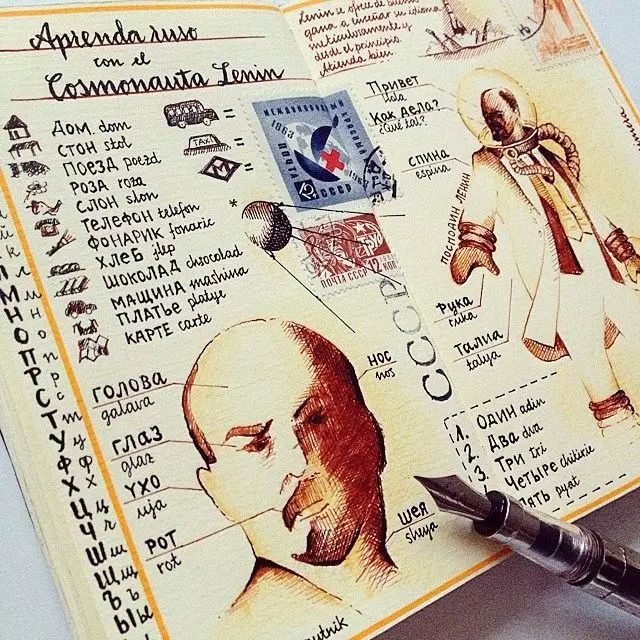 Aprenda ruso
con el
Cosmonauta Lenin
ДОМ dom
СТОН stol
ПОЕЗД poezd
РОЗА roza
СЛОН slon
ТЕЛЕФОН telefon
ФОНАРИК fonaric
ХЛЕБ jlep
ШОКОЛАД chocolad
МАЩИНА mashina
ПЛАТЬЕ platye
КАРТЕ carte
=
TAXI =
М =
*
МЕЖДУНАРОДНЫЙ КРАСНЫЙ
1863
1963
ПОЧТА
СССР
ПОЧТА СССР 12 КОП
СССР
ГОЛОВА
galava
ГЛАЗ
glaz
УХО
uja
РОТ
rot
НОС
nos
ШЕЯ
sheya
Lenin se ofrece de buena
gana a enseñar su idioma
meticulosamente y
desde el principio.
Atienda bien
Привет
Hola
Как дела?
¿Qué tal?
СПИНА
espina
ГОСПОДИН ЛЕНИН
Рука
ruka
Талиа
talya
1. ОДИН adin
2. Два dva
3. Три tri
Четыре chitirie
Пять pyat
Л л
М м
Н н
О о
П п
Р р
С с
Т т
У у
Ф ф
Х х
Ц ц
Ч ч
Ш ш
Щ щ
Ъ ъ
Ы ы